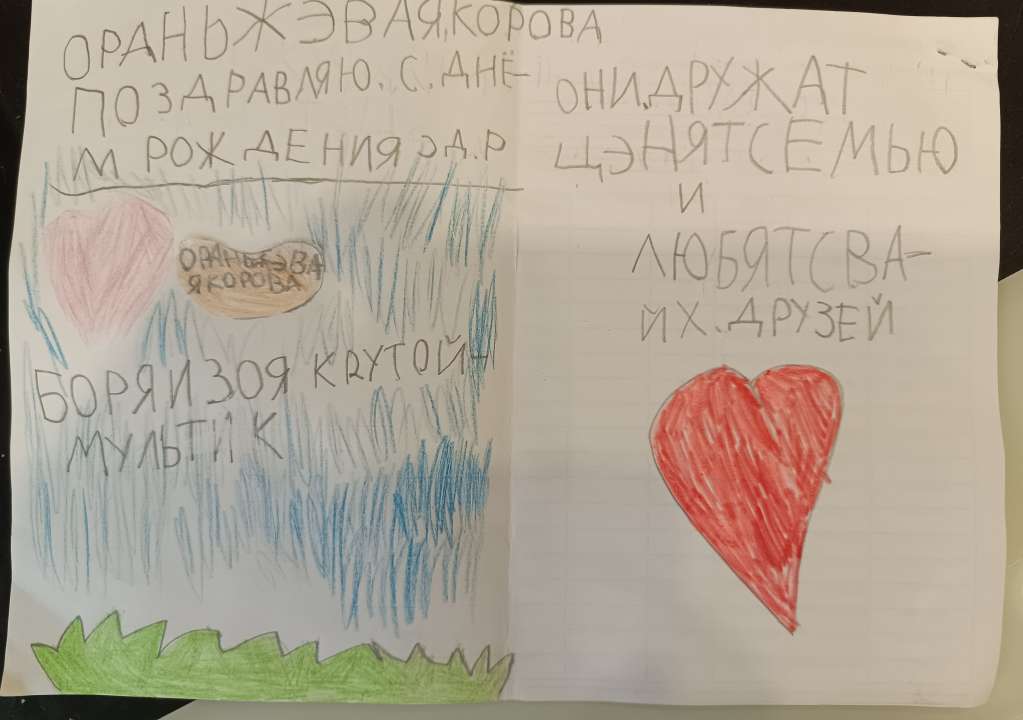 ОРАНЬЖЭВАЯ,КОРОВА
ПОЗДРАВЛЯЮ.С.ДНЁ-
М РОЖДЕНИЯ ЭД.Р
ОРАНЬЖЭВА
ЯКОРОВА
БОРЯ И ЗОЯ КРУТОЙ-
МУЛЬТИК
ОНИ.ДРУЖАТ
ЦЭНЯТСЕМЬЮ
И
ЛЮБЯТСВА-
ИХ.ДРУЗЕЙ